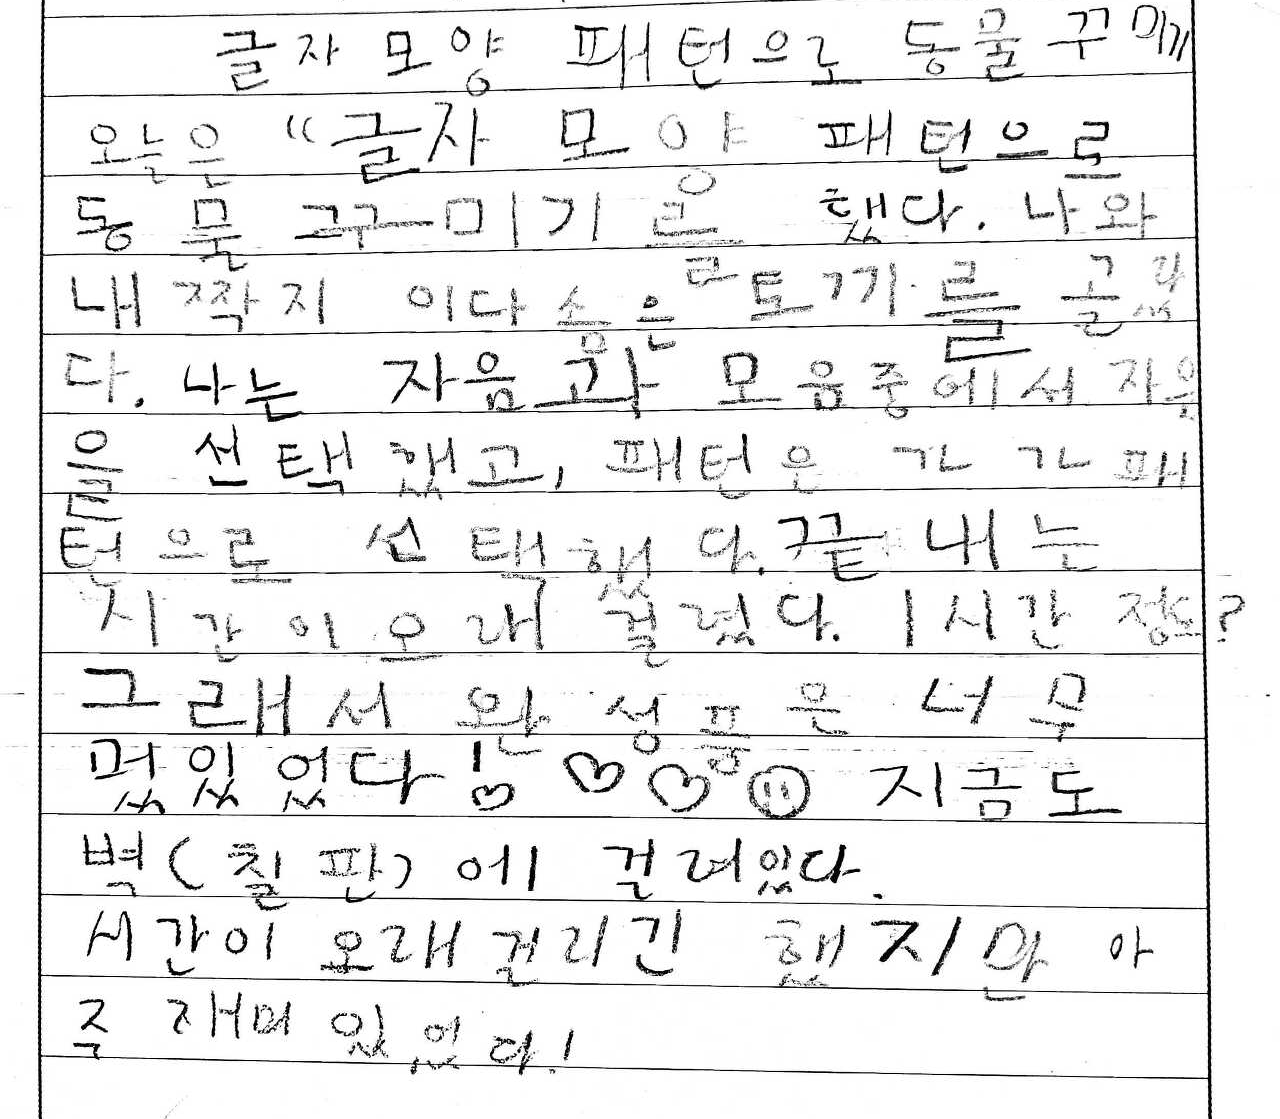 글자 모양 패턴으로 동물 꾸미기
오늘은 "글자 모양 패턴으로
동물 꾸미기를 했다. 나와
내 짝지 이다솜은 토끼를 골랐
다. 나는 자음과 모음중에서 자음
을 선택했고, 패턴은 ㄱㄴㄱㄴ패
턴으로 선택했다. 끝내는
시간이 오래 걸렸다. 1시간 정도?
그래서 완성품은 너무
멌있었다! ♡♡ 지금도
벽(칠판)에 걸려있다.
시간이 오래 걸리긴 했지만 아
주 재미있었다!